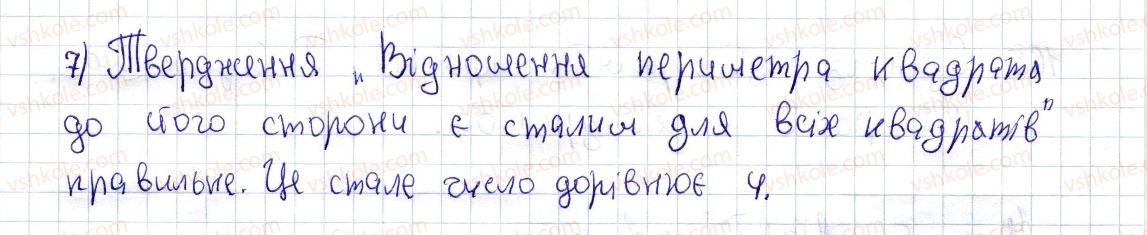 7) Твердження „Відношення периметра квадрата
до його сторони є сталим для всіх квадратів"
правильне. Це стале число дорівнює 4.